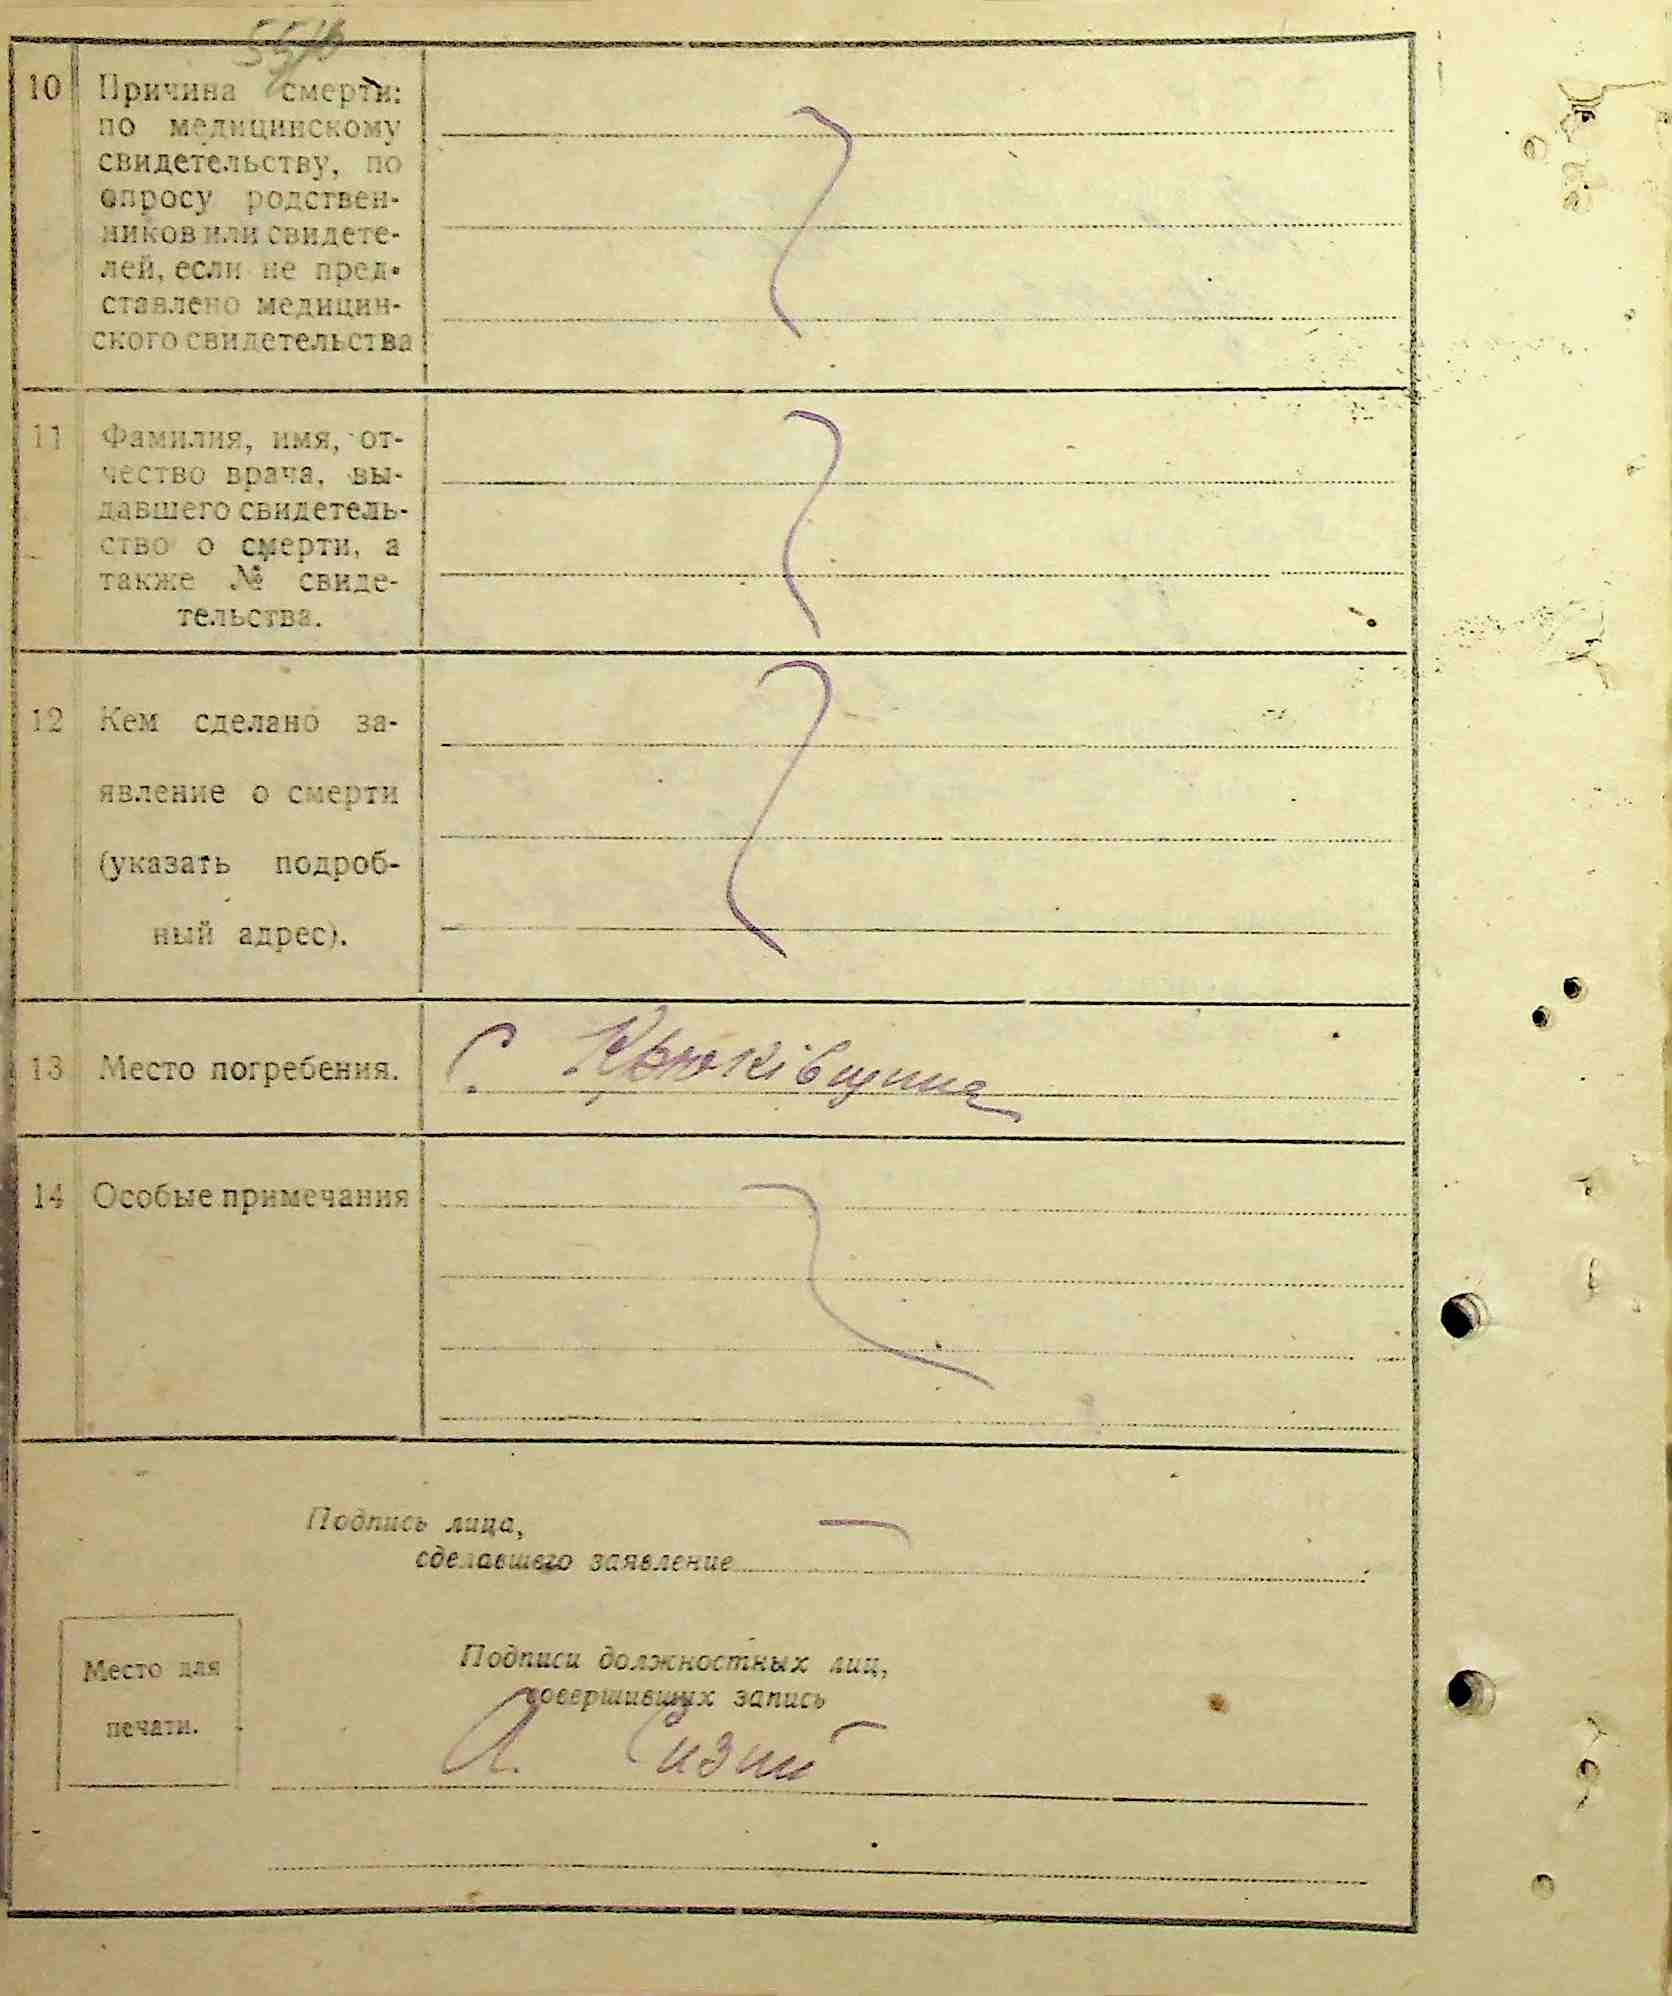 10 Причина смерти:
по медицинскому
свидетельству, по
опросу родствен-
ников или свидете-
лей, если не пред-
ставлено медицин-
ского свидетельства
11 Фамилия, имя, от-
чество врача, вы-
давшего свидетель-
ство о смерти, а
также № свиде-
тельства.
12 Кем сделано за-
явление о смерти
(указать подроб-
ный адрес).
13 Место погребения. С. Крюківщина
14 Особые примечания
Подпись лица,
сделавшего заявление
Место для
печати.
Подписи должностных лиц,
совершивших запись
А. Сизий